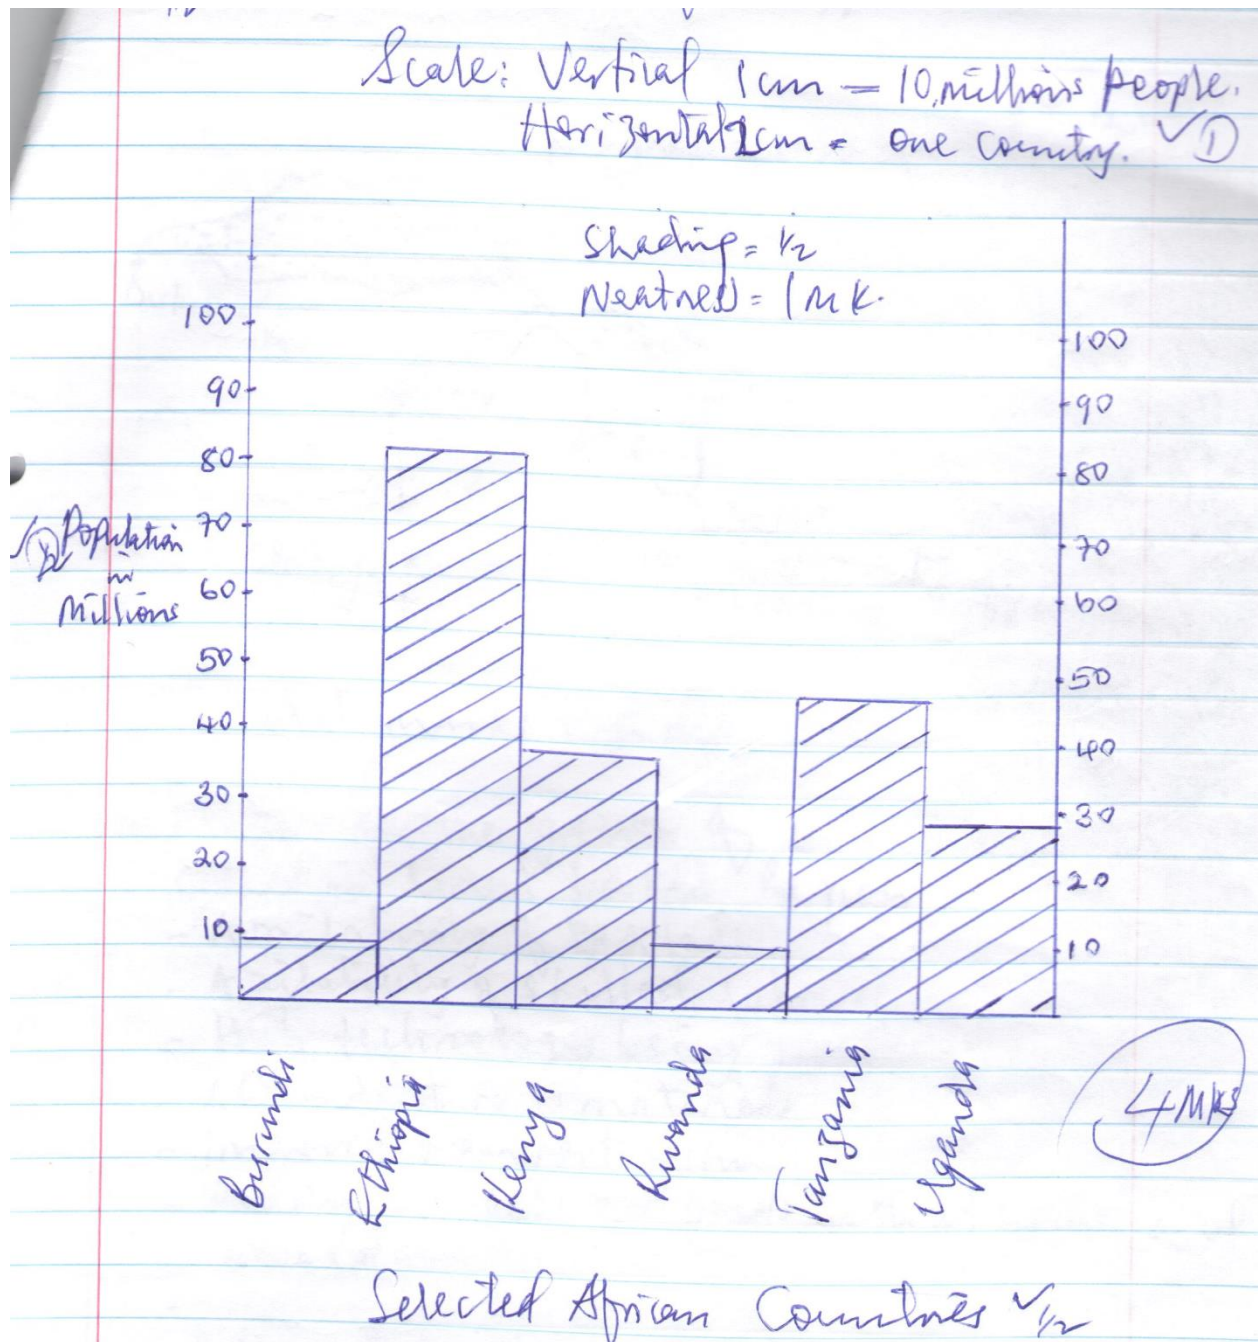 Scale: Vertical 1cm = 10 millions people.
Horizontal 2cm = one country. ✓①
Shading = 1/2
Neatness = 1 MK.
100
90
80
70
60
50
40
30
20
10
✓ Population
in
Millions
100
90
80
70
60
50
40
30
20
10
Burundi
Ethiopia
Kenya
Rwanda
Tanzania
Uganda
4 MKS
Selected African Countries ✓1/2